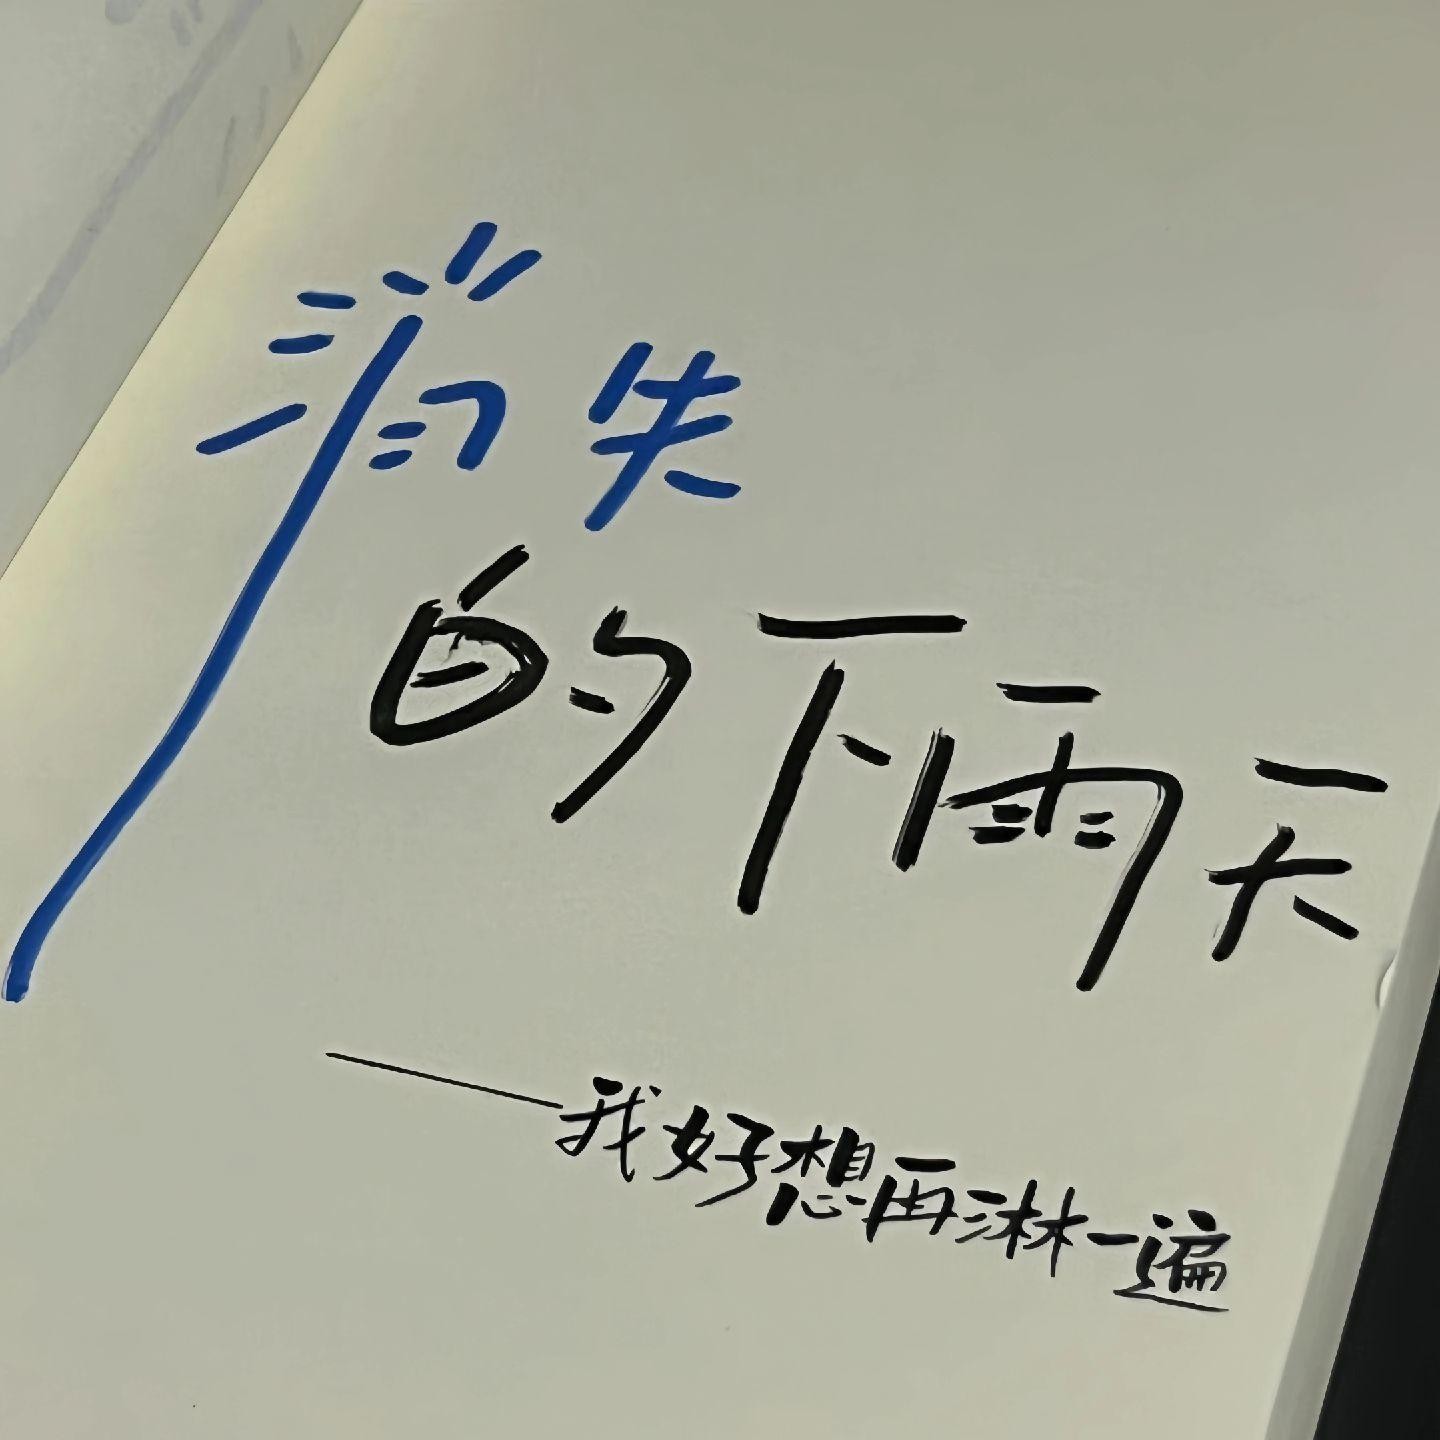 消失
的下雨天
——我好想再淋一遍